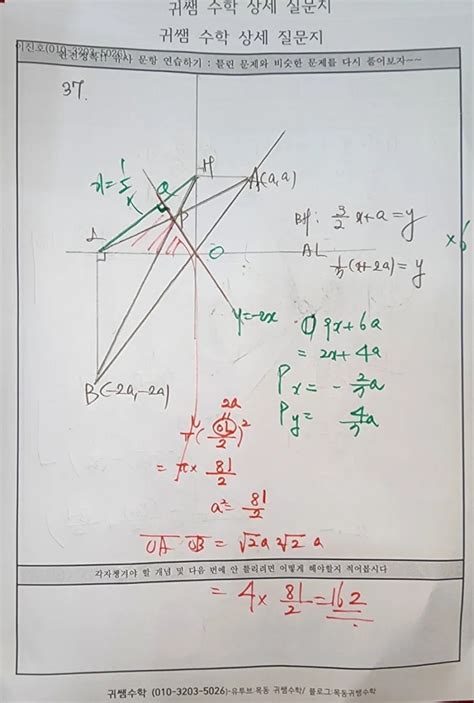 귀쌤 수학 상세 질문지
귀쌤 수학 상세 질문지
이신호(010-3203-5026)
완전정복!! 유사 문항 연습하기 : 틀린 문제와 비슷한 문제를 다시 풀어보자~~
37.
H
A(a,a)
Q
P
L
O
BH: 3/2 x+a=y
AL
1/3(x+2a)=y
×6
y=-2x
① 9x+6a
= 2x+4a
Px = -2/7a
Py = 4/7a
B(-2a,-2a)
2a
π(OL/2)²
= π× 81/2
a²= 81/2
OA OB = √2a 2√2 a
각자챙겨야 할 개념 및 다음 번에 안 틀리려면 어떻게 해야할지 적어봅시다
= 4× 81/2 = 162
귀쌤수학 (010-3203-5026)-유투브:목동 귀쌤수학/ 블로그:목동귀쌤수학